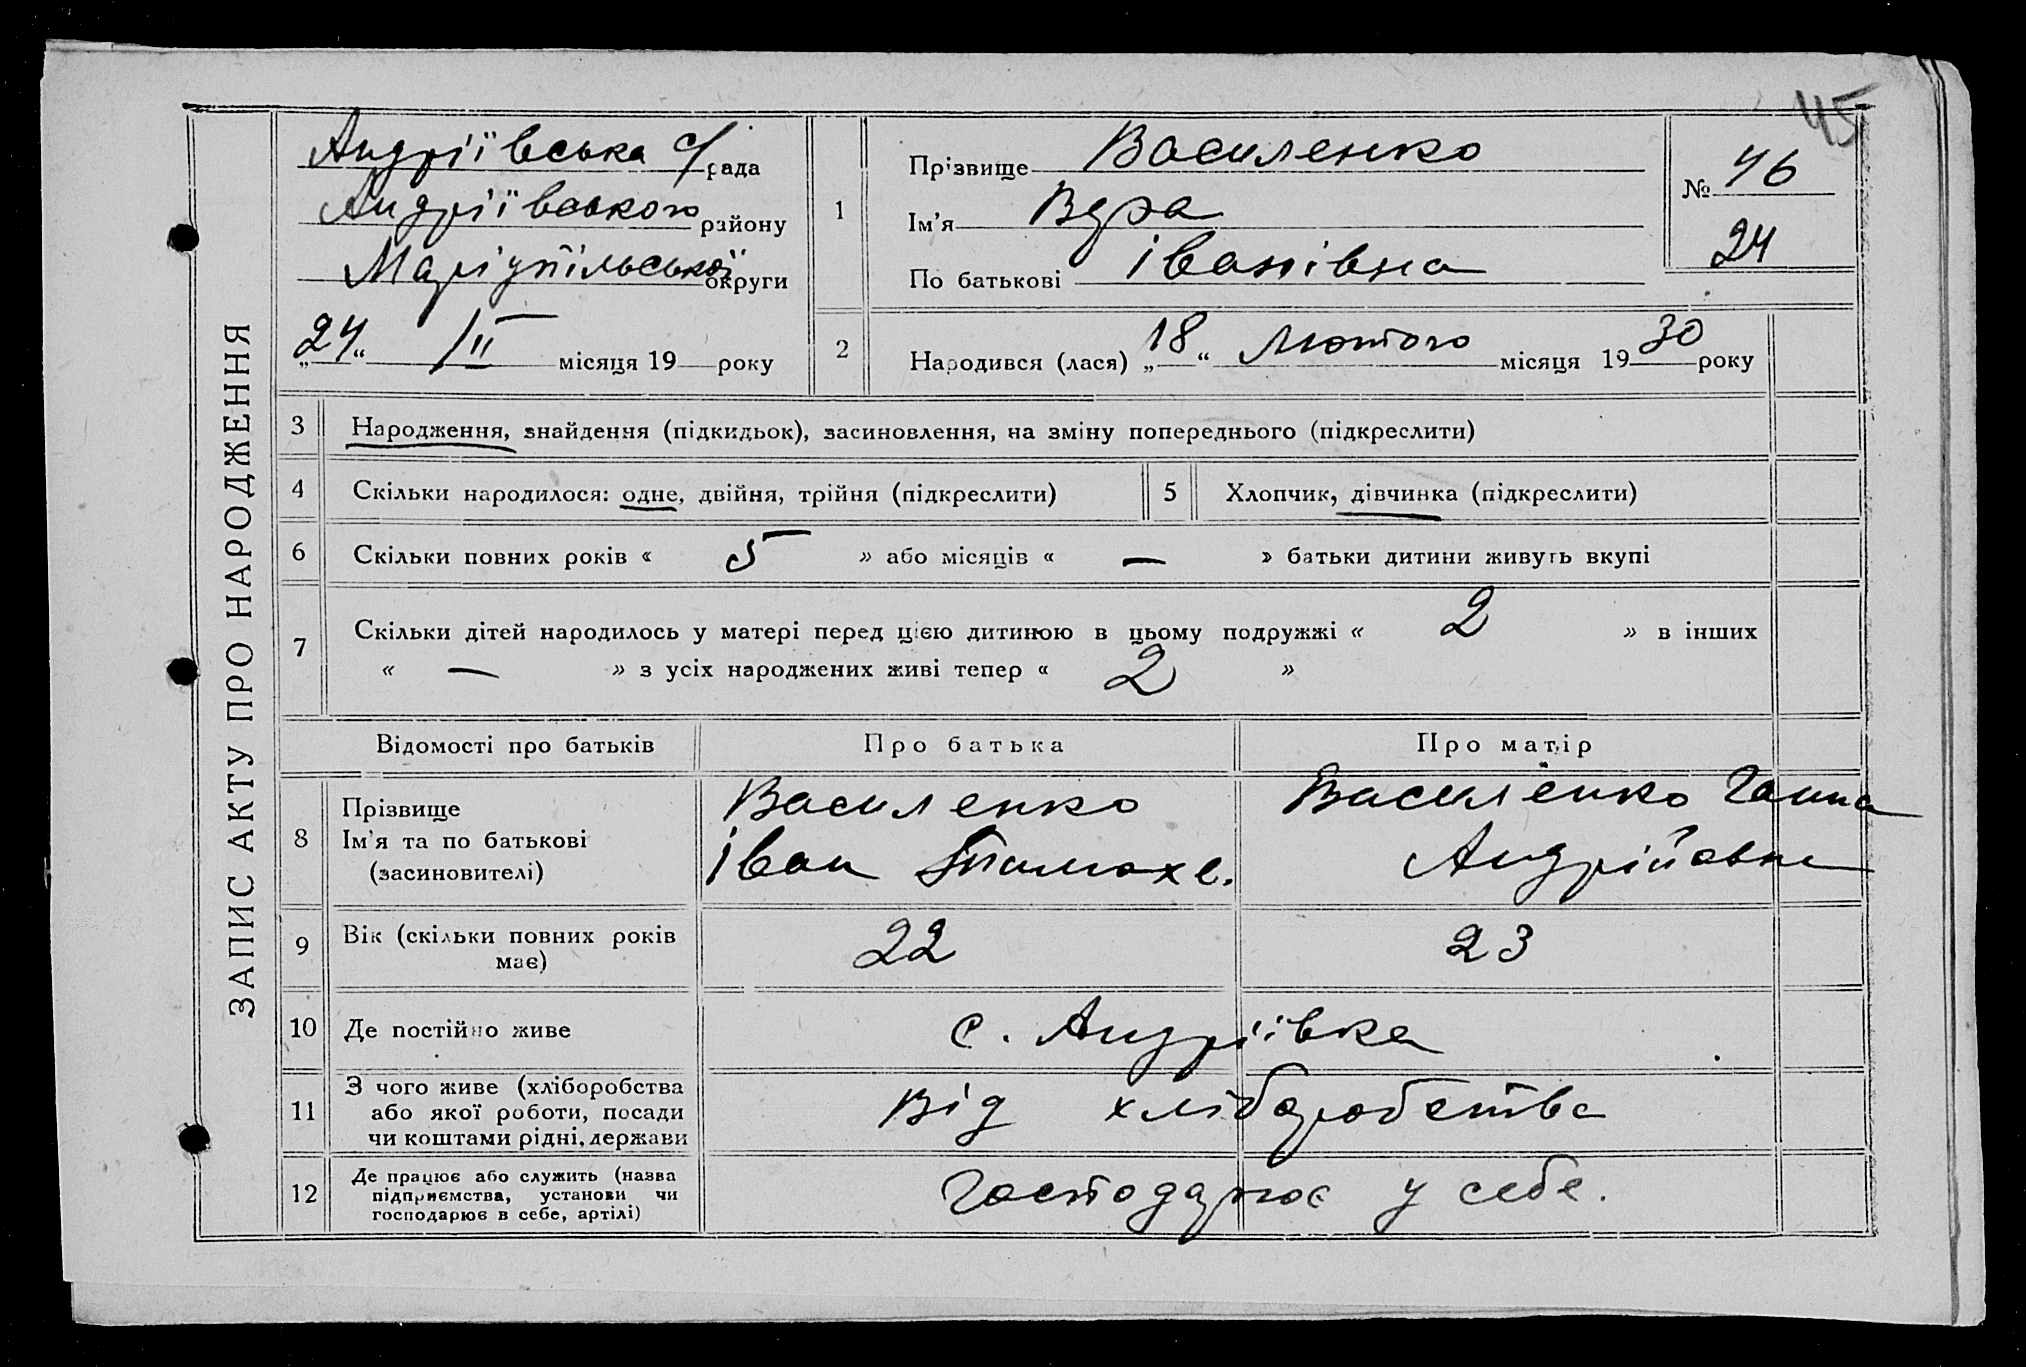 45
ЗАПИС АКТУ ПРО НАРОДЖЕННЯ
Андріївська с/рада
Андріївського району
Маріупільської округи
„24“ /II місяця 19 року
1
Прізвище Василенко
Ім’я Вера
По батькові Іванівна
№ 46
24
2
Народився (лася) „18“ Лютого місяця 1930 року
3 Народження, знайдення (підкидьок), засиновлення, на зміну попереднього (підкреслити)
4 Скільки народилося: одне, двійня, трійня (підкреслити) 5 Хлопчик, дівчинка (підкреслити)
6 Скільки повних років « 5 » або місяців « — » батьки дитини живуть вкупі
7 Скільки дітей народилось у матері перед цією дитиною в цьому подружжі « 2 » в інших
« — » з усіх народжених живі тепер « 2 »
Відомості про батьків Про батька Про матір
8 Прізвище
Ім’я та по батькові
(засиновителі)
Василенко
Іван
Василенко Ганна
Андрійовна
9 Вік (скільки повних років
має)
22 23
10 Де постійно живе с. Андріївка
11 З чого живе (хліборобства
або якої роботи, посади
чи коштами рідні, держави
Від хліборобства
12 Де працює або служить (назва
підприємства, установи чи
господарює в себе, артілі)
Господарює у себе.